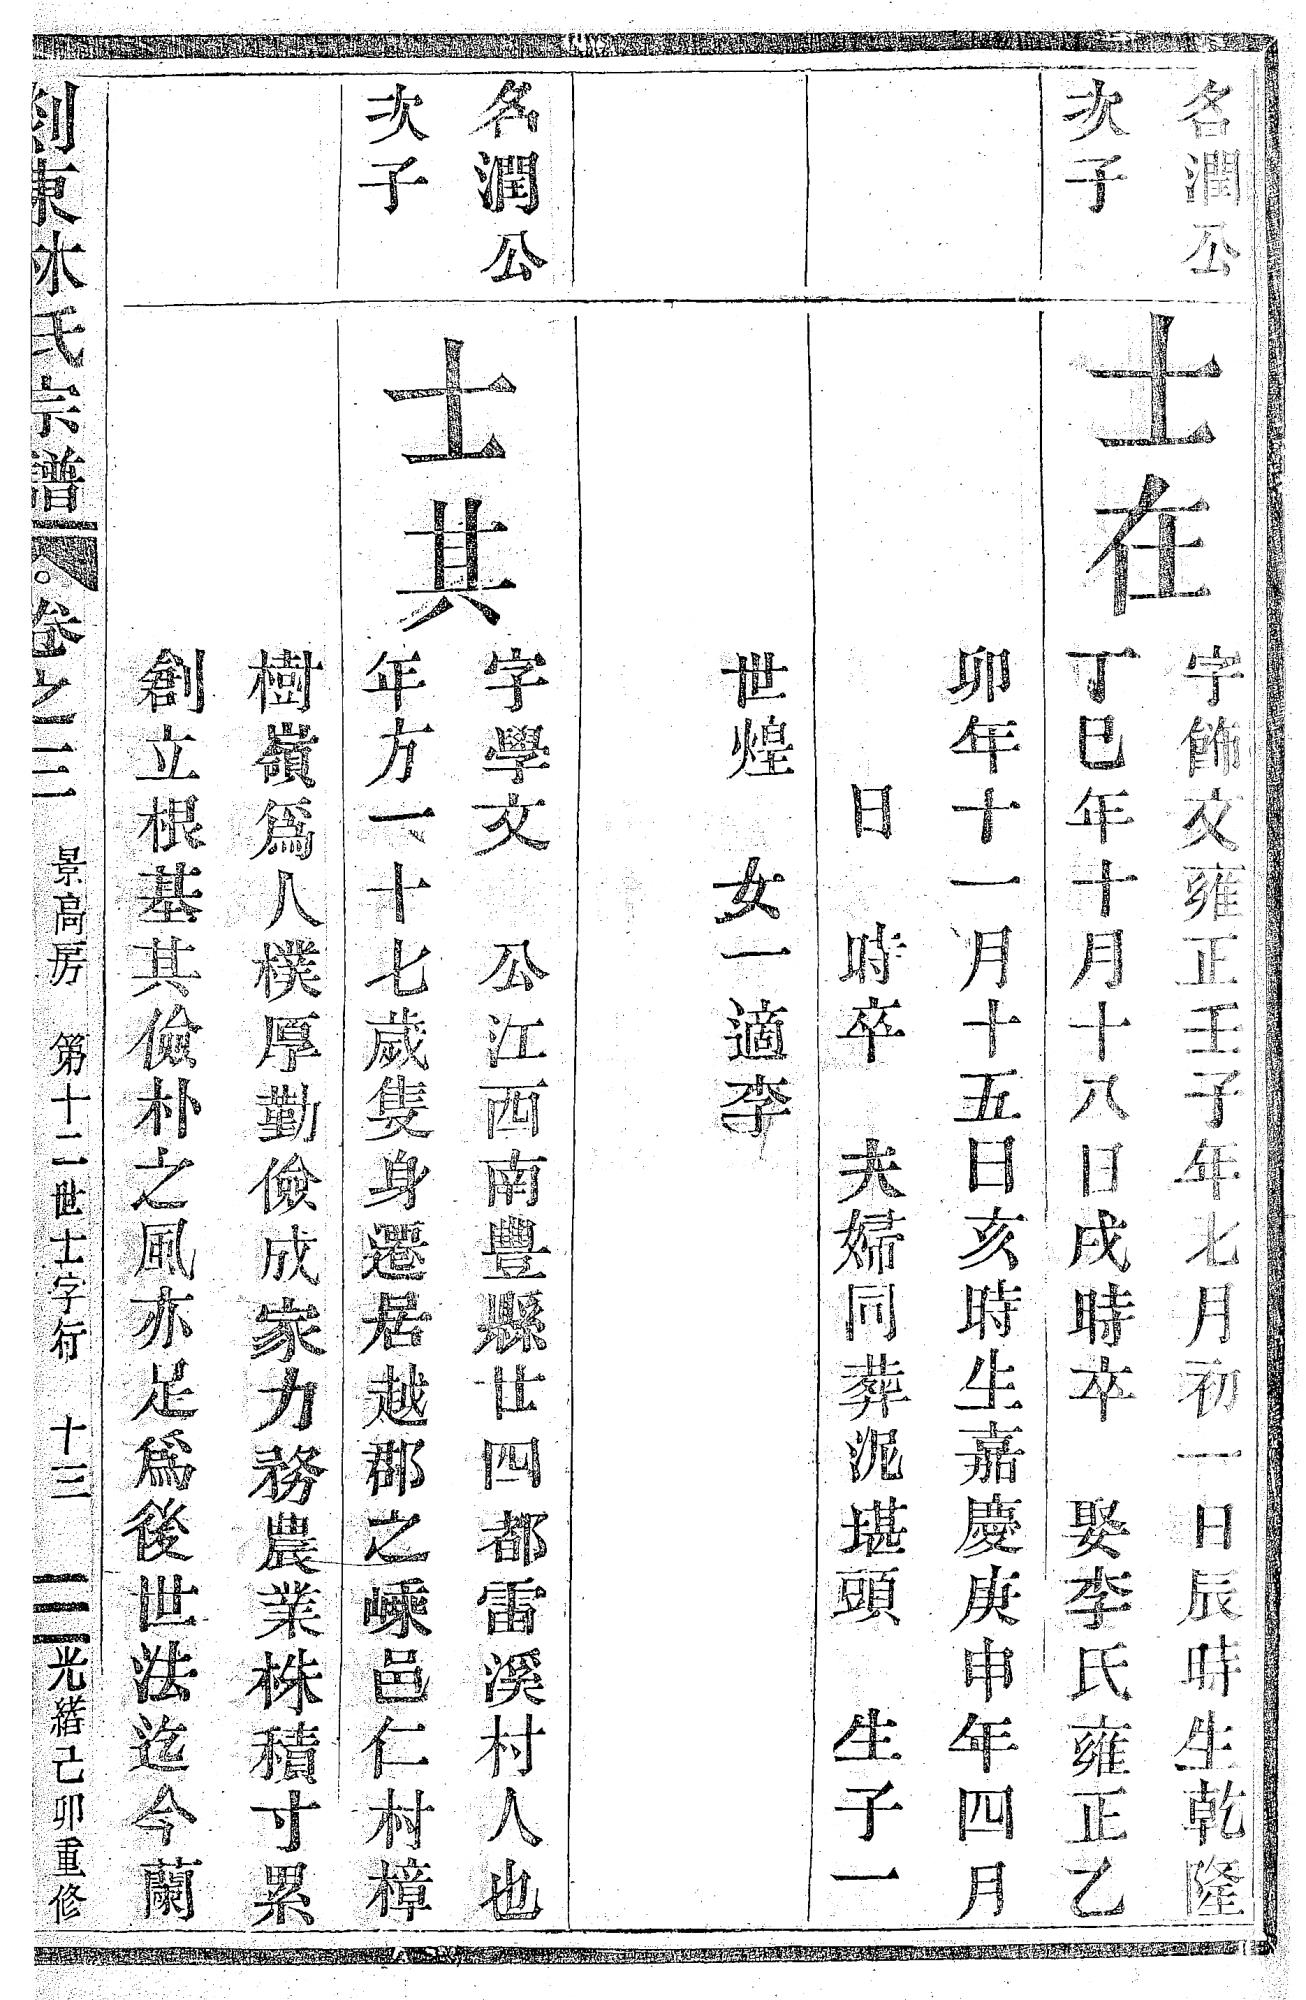 名潤公
次子
士在
字飾文雍正壬子年七月初一日辰時生乾隆
丁巳年十月十八日戌時卒　娶李氏雍正乙
卯年十一月十五日亥時生嘉慶庚申年四月
日　時卒　夫婦同葬泥堪頭　生子一
世煌　女一適李
名潤公
次子
士其
字學文　公江西南豐縣廿四都雷溪村人也
年方一十七歲隻身遷居越郡之嵊邑仁村樟
樹嶺爲人樸厚勤儉成家力務農業株積寸累
創立根基其儉朴之風亦足爲後世法迄今蘭
剡東水氏宗譜　卷之三　景高房　第十二世士字行　十三　光緒己卯重修